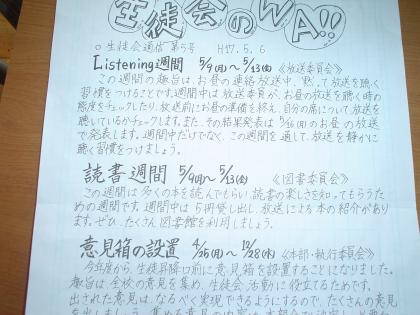 生徒会のWA!!
○生徒会通信 第5号 H17.5.6
Listening週間 5/9(月)~5/13(金) 《放送委員会》
この週間の趣旨は、お昼の連絡放送中、黙って放送を聴く
習慣をつけることです。週間中は放送委員が、お昼の放送を聴く時の
態度をチェックしたり、放送前にお昼の準備を終え、自分の席について放送を
聴いているかチェックします。また、その結果発表は5/16(月)のお昼の放送
で発表します。週間中だけでなく、この週間を通して、放送を静かに
聴く習慣をつけましょう。
読書週間 5/9(月)~5/13(金) 《図書委員会》
この週間は多くの本を読んでもらい読書の楽しさを知ってもらうた
めの週間です。週間中は5冊貸し出し、放送による本の紹介があり
ます。ぜひ、たくさん図書館を利用しましょう。
意見箱の設置 4/25(月)~10/28(水) 《本部・執行委員会》
今年度から、生徒昇降口前に意見箱を設置することになりました。
趣旨は、全校の意見を集め、生徒会活動に役立てるためです。
出された意見は、なるべく実現できるようにするので、たくさんの意見